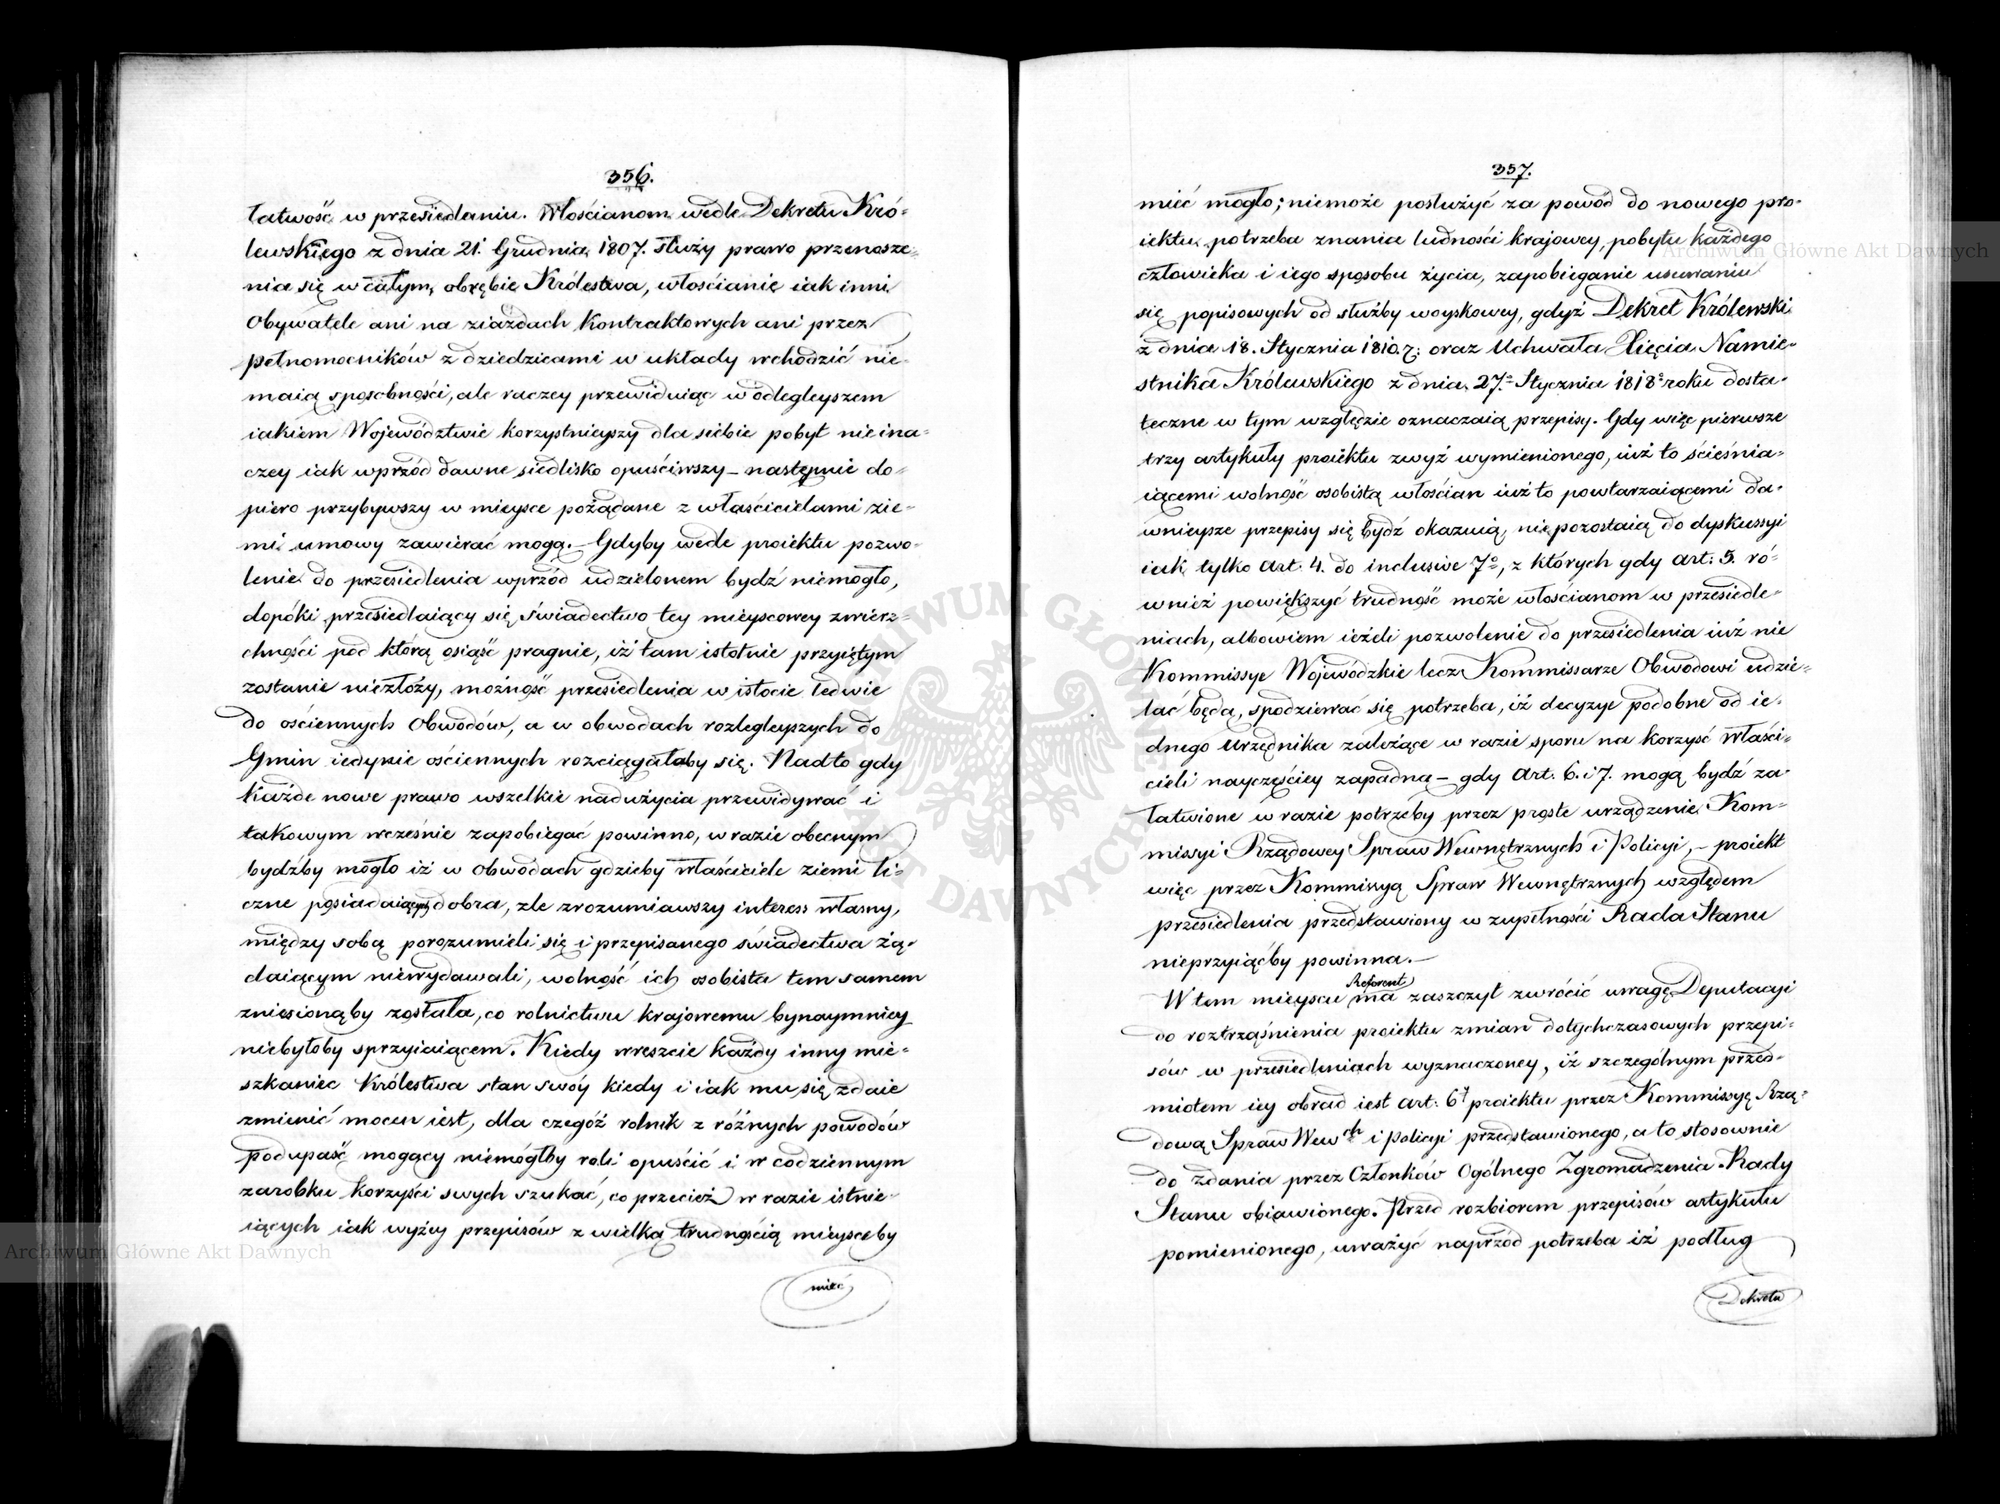 356.
łatwość w przesiedlaniu. Włościanom wedle Dekretu Kró-
lewskiego z dnia 21. Grudnia 1807. służy prawo przenosze-
nia się w całym obrębie Królestwa, włościanie iak inni
Obywatele ani na ziazdach Kontraktowych ani przez
pełnomocników z dziedzicami w układy wchodzić nie-
maią sposobności, ale raczey przewiduiąc w odlegleyszem
iakiem Województwie korzystnieyszy dla siebie pobyt nie ina-
czey iak wprzód dawne siedlisko opuściwszy – następnie do-
piero przybywszy w mieysce pożądane z właścicielami zie-
mi umowy zawierać mogą. – Gdyby wedle proiektu pozwo-
lenie do przesiedlenia wprzód udzielonem bydź niemogło,
dopóki przesiedlaiący się świadectwo tey mieyscowey zwierz-
chności pod którą osiąść pragnie, iż tam istotnie przyiętym
zostanie niezłoży, możność przesiedlenia w istocie ledwie
do ościennych Obwodów, a w obwodach rozlegleyszych do
Gmin iedynie ościennych rozciągałaby się. Nadto gdy
każde nowe prawo wszelkie nadużycia przewidywać i
takowym wcześnie zapobiegać powinno, w razie obecnym
bydźby mogło iż w Obwodach gdzieby właściciele ziemi li-
czne posiadaiący dobra, źle zrozumiawszy interess własny,
między sobą porozumieli się i przepisanego świadectwa żą-
daiącym niewydawali, wolność ich osobista tem samem
zniesionąby została, co rolnictwu krajowemu bynaymniey
niebyłoby sprzyiaiącem. Kiedy wreszcie każdy inny mie-
szkaniec Królestwa stan swóy kiedy i iak mu się zdaie
zmienić mocen iest, dla czegóż rolnik z różnych powodów
podupaść mogący niemógłby roli opuścić i w codziennym
zarobku korzyści swych szukać, co przecież w razie istnie-
iących iak wyżey przepisów z wielką trudnością mieysceby
mieć
357.
mieć mogło; niemoże posłużyć za powód do nowego pro-
iektu potrzeba znania ludności krajowey, pobytu każdego
człowieka i iego sposobu życia, zapobieganie usuwaniu
się popisowych od służby woyskowey, gdyż Dekret Królewski
z dnia 18. Stycznia 1810. r. oraz Uchwała Xięcia Namie-
stnika Królewskiego z dnia 27.º Stycznia 1818º roku dosta-
teczne w tym względzie oznaczaią przepisy. Gdy więc pierwsze
trzy artykuły proiektu zwyż wymienionego, iuż to ścieśnia-
iącemi wolność osobistą włościan iuż to powtarzaiącemi da-
wnieysze przepisy się bydź okazuią, nie pozostaią do dyskussyi
iak tylko art. 4. do inclusive 7º, z których gdy art. 5. ró-
wnież powiększyć trudność może włościanom w przesiedle-
niach, albowiem ieżeli pozwolenie do przesiedlenia iuż nie
Kommissye Wojewódzkie lecz Kommissarze Obwodowi udzie-
lać będą, spodziewać się potrzeba, iż decyzye podobne od ie-
dnego urzędnika zależące w razie sporu na korzyść właści-
cieli nayczęściey zapadną – gdy Art. 6. i 7. mogą bydź za-
łatwione w razie potrzeby przez proste urządzenie Kom-
missyi Rządowey Spraw Wewnętrznych i Policyi, – proiekt
więc przez Kommissyą Spraw Wewnętrznych względem
przesiedlenia przedstawiony w zupełności Rada Stanu
nieprzyiąćby powinna. –
Referent
W tem mieyscu ma zaszczyt zwrócić uwagę Deputacyi
do roztrząśnienia proiektu zmian dotychczasowych przepi-
sów w przesiedleniach wyznaczoney, iż szczególnym przed-
miotem iey obrad iest art. 6ty proiektu przez Kommissyę Rzą-
dową Spraw Wewch i Policyi przedstawionego, a to stosownie
do zdania przez Członków Ogólnego Zgromadzenia Rady
Stanu obiawionego. Przed rozbiorem przepisów artykułu
pomienionego, uważyć naprzód potrzeba iż podług
Dekretu
Archiwum Główne Akt Dawnych
Archiwum Główne Akt Dawnych
ARCHIWUM GŁÓWNE AKT DAWNYCH